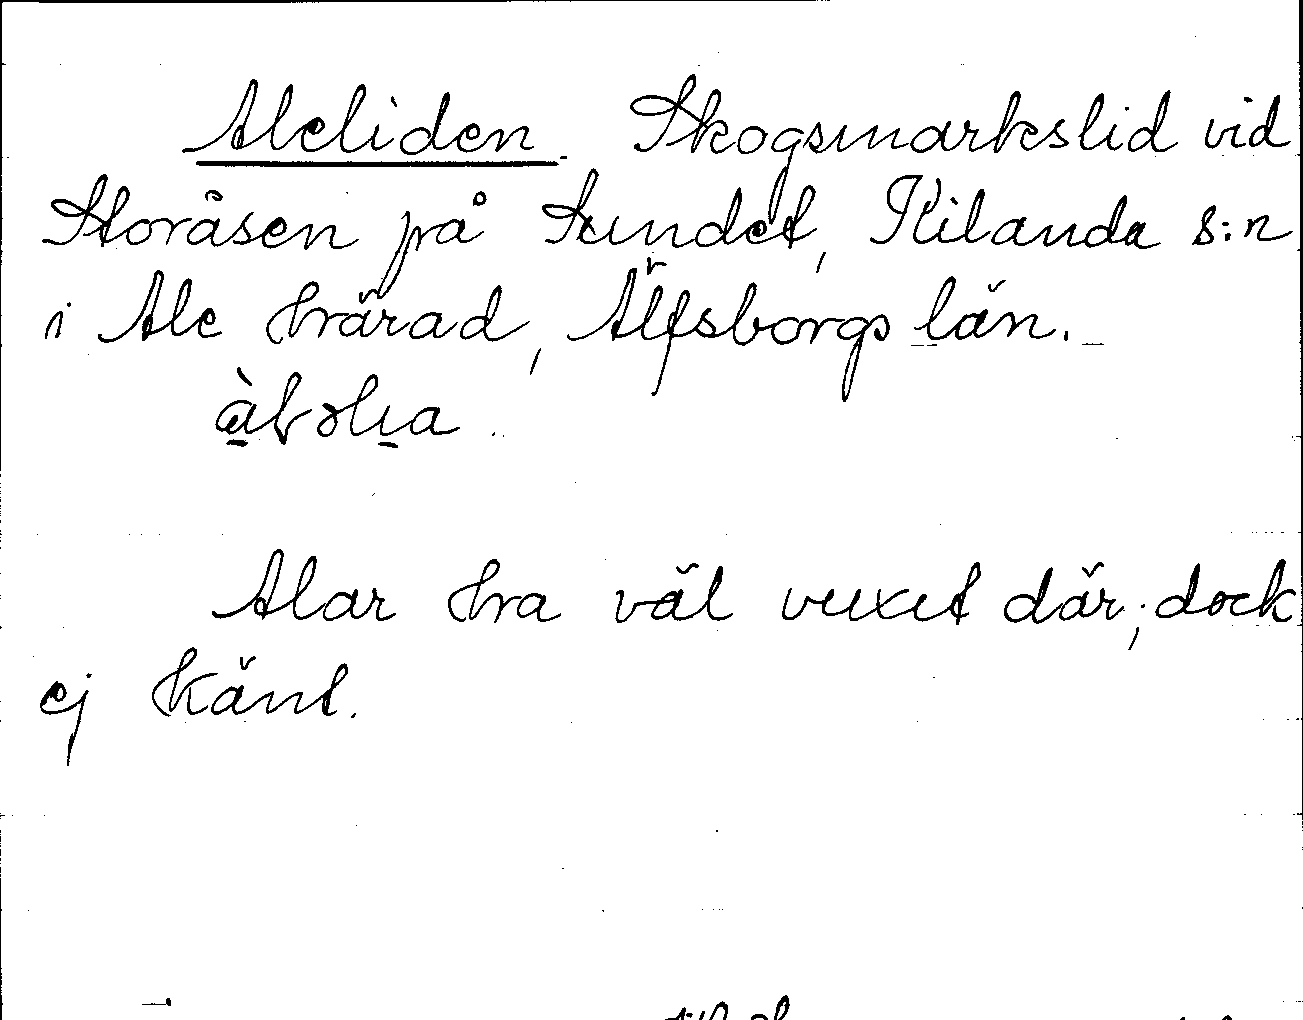 Aleliden. Skogsmarkslid vid
Storåsen på Sundet, Kilanda s:n
i Ale härad, Älfsborgs län.
Alar ha väl vuxit där; dock
ej känt.